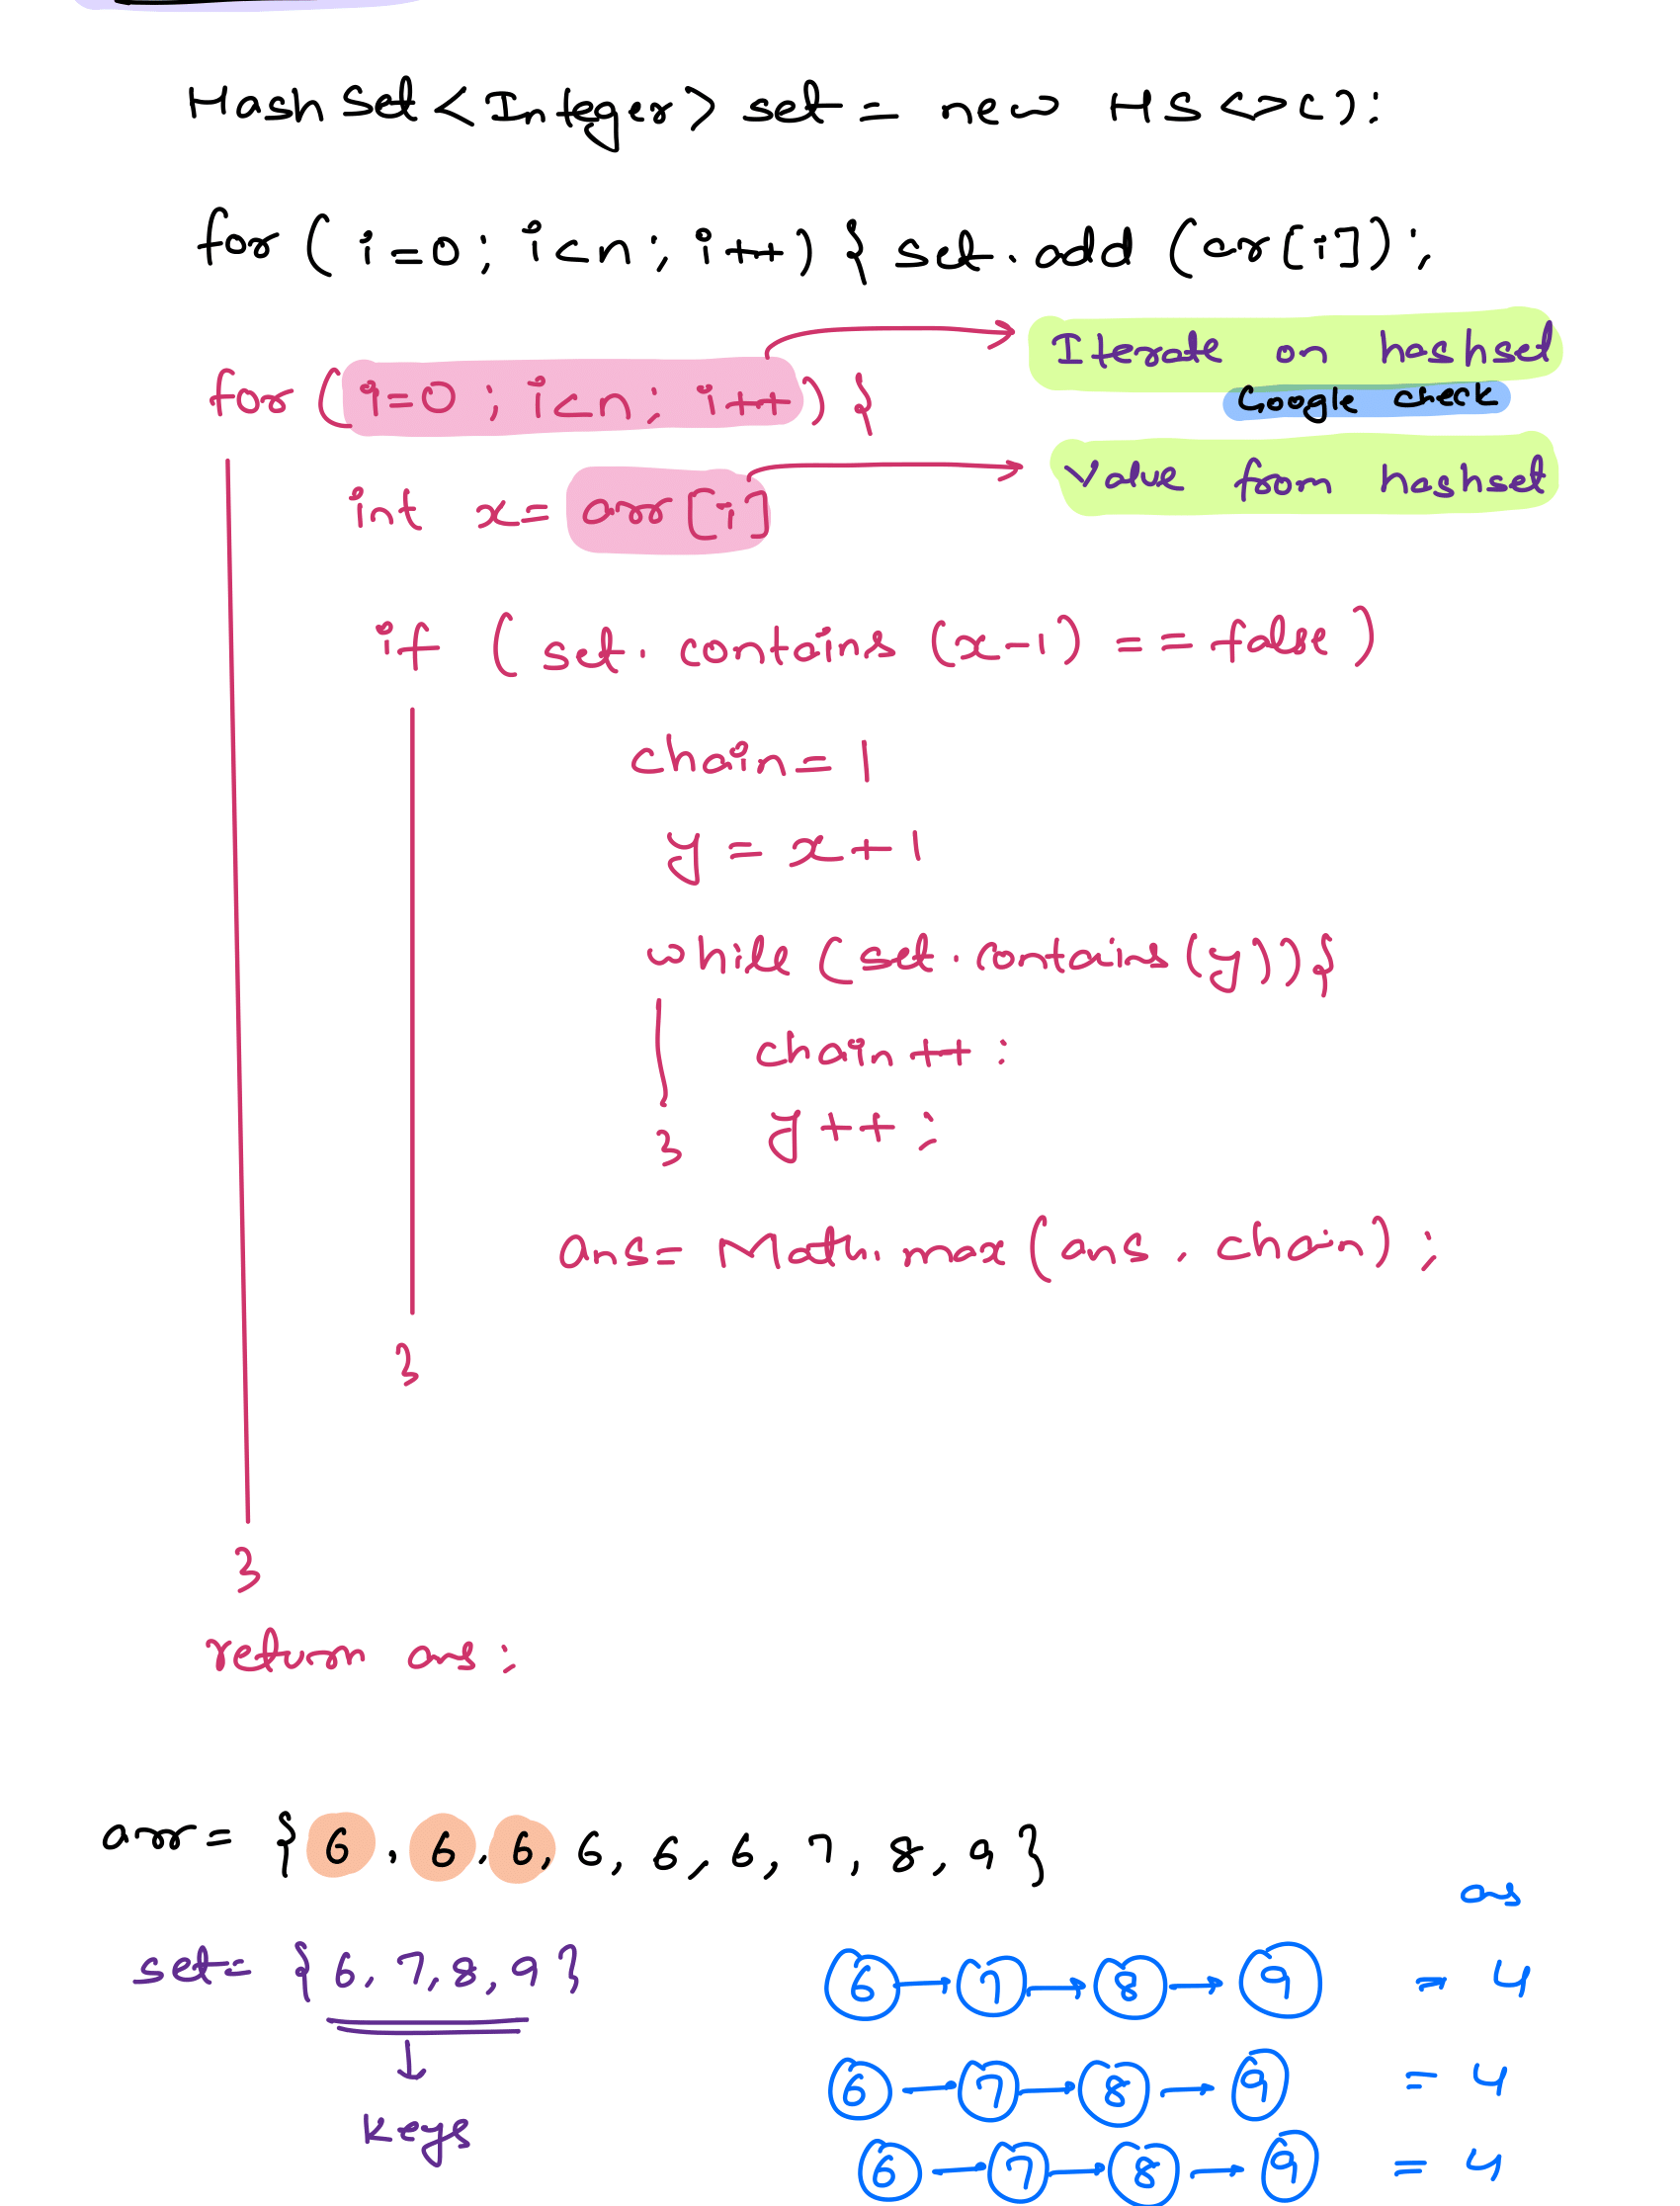 HashSet<Integer> set = new HS<>();
for ( i=0; i<n; i++) { set.add (ar[i]);
Iterate on hashset
for ( i=0 ; i<n; i++ ) {
Google check
Value from hashset
int x= arr[i]
if ( set. contains (x-1) == false )
chain= 1
y = x+1
while (set.contains(y)){
chain++ :
y++ ;
}
ans= Math.max(ans, chain) ;
}
}
return ans;
arr= {6, 6, 6, 6, 6, 6, 7, 8, 9}
ans
set= {6, 7, 8, 9}
6 → 7 → 8 → 9 = 4
6 → 7 → 8 → 9 = 4
keys
6 → 7 → 8 → 9 = 4